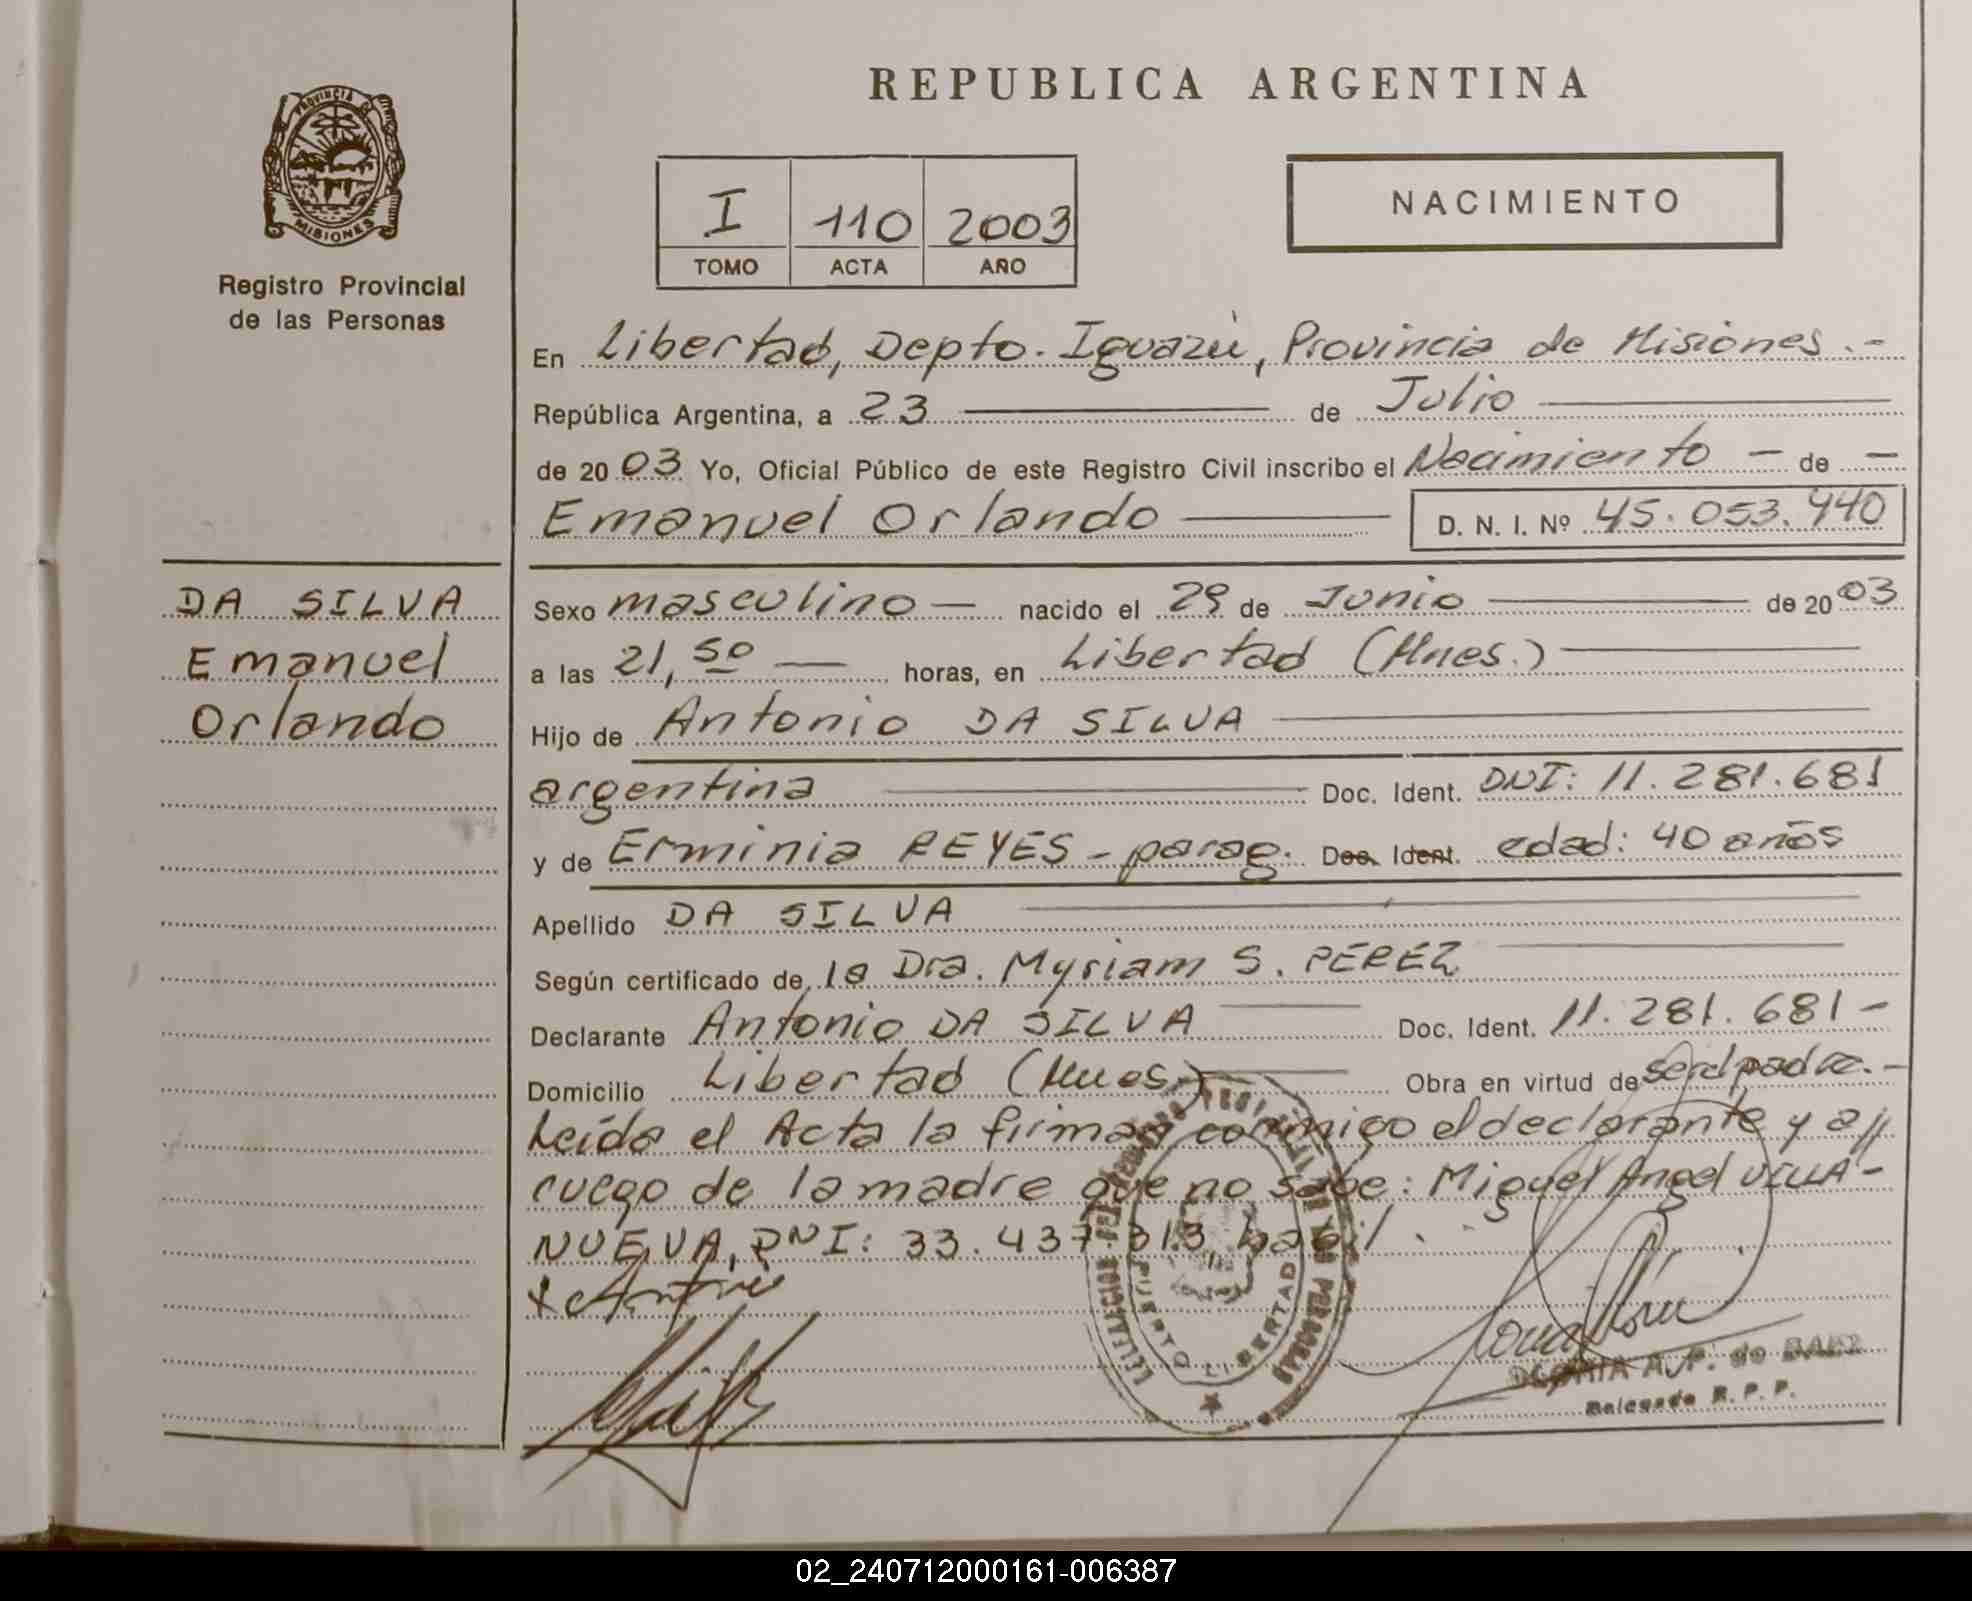 REPUBLICA ARGENTINA
PROVINCIA DE
MISIONES
Registro Provincial
de las Personas
I 110 2003
TOMO ACTA AÑO
NACIMIENTO
En Libertad, Depto. Iguazú, Provincia de Misiones.-
República Argentina, a 23 de Julio
de 2003 Yo, Oficial Público de este Registro Civil inscribo el Nacimiento - de -
Emanuel Orlando D. N. I. Nº 45.053.940
DA SILVA
Emanuel
Orlando
Sexo masculino - nacido el 29 de Junio de 2003
a las 21,50 horas, en Libertad (Mnes.)
Hijo de Antonio DA SILVA
argentina Doc. Ident. DNI: 11.281.681
y de Erminia REYES - parag. Doc. Ident. edad: 40 años
Apellido DA SILVA
Según certificado de la Dra. Myriam S. PÉREZ
Declarante Antonio DA SILVA Doc. Ident. 11.281.681-
Domicilio Libertad (Mnes.) Obra en virtud de ser el padre.-
Leída el Acta la firman conmigo el declarante y a//
ruego de la madre que no sabe: Miguel Angel VILLA-
NUEVA, DNI: 33.437.313, habil.
PUERTO LIBERTAD
A. P. de BAEZ
Delegada R. P. P.
02_240712000161-006387